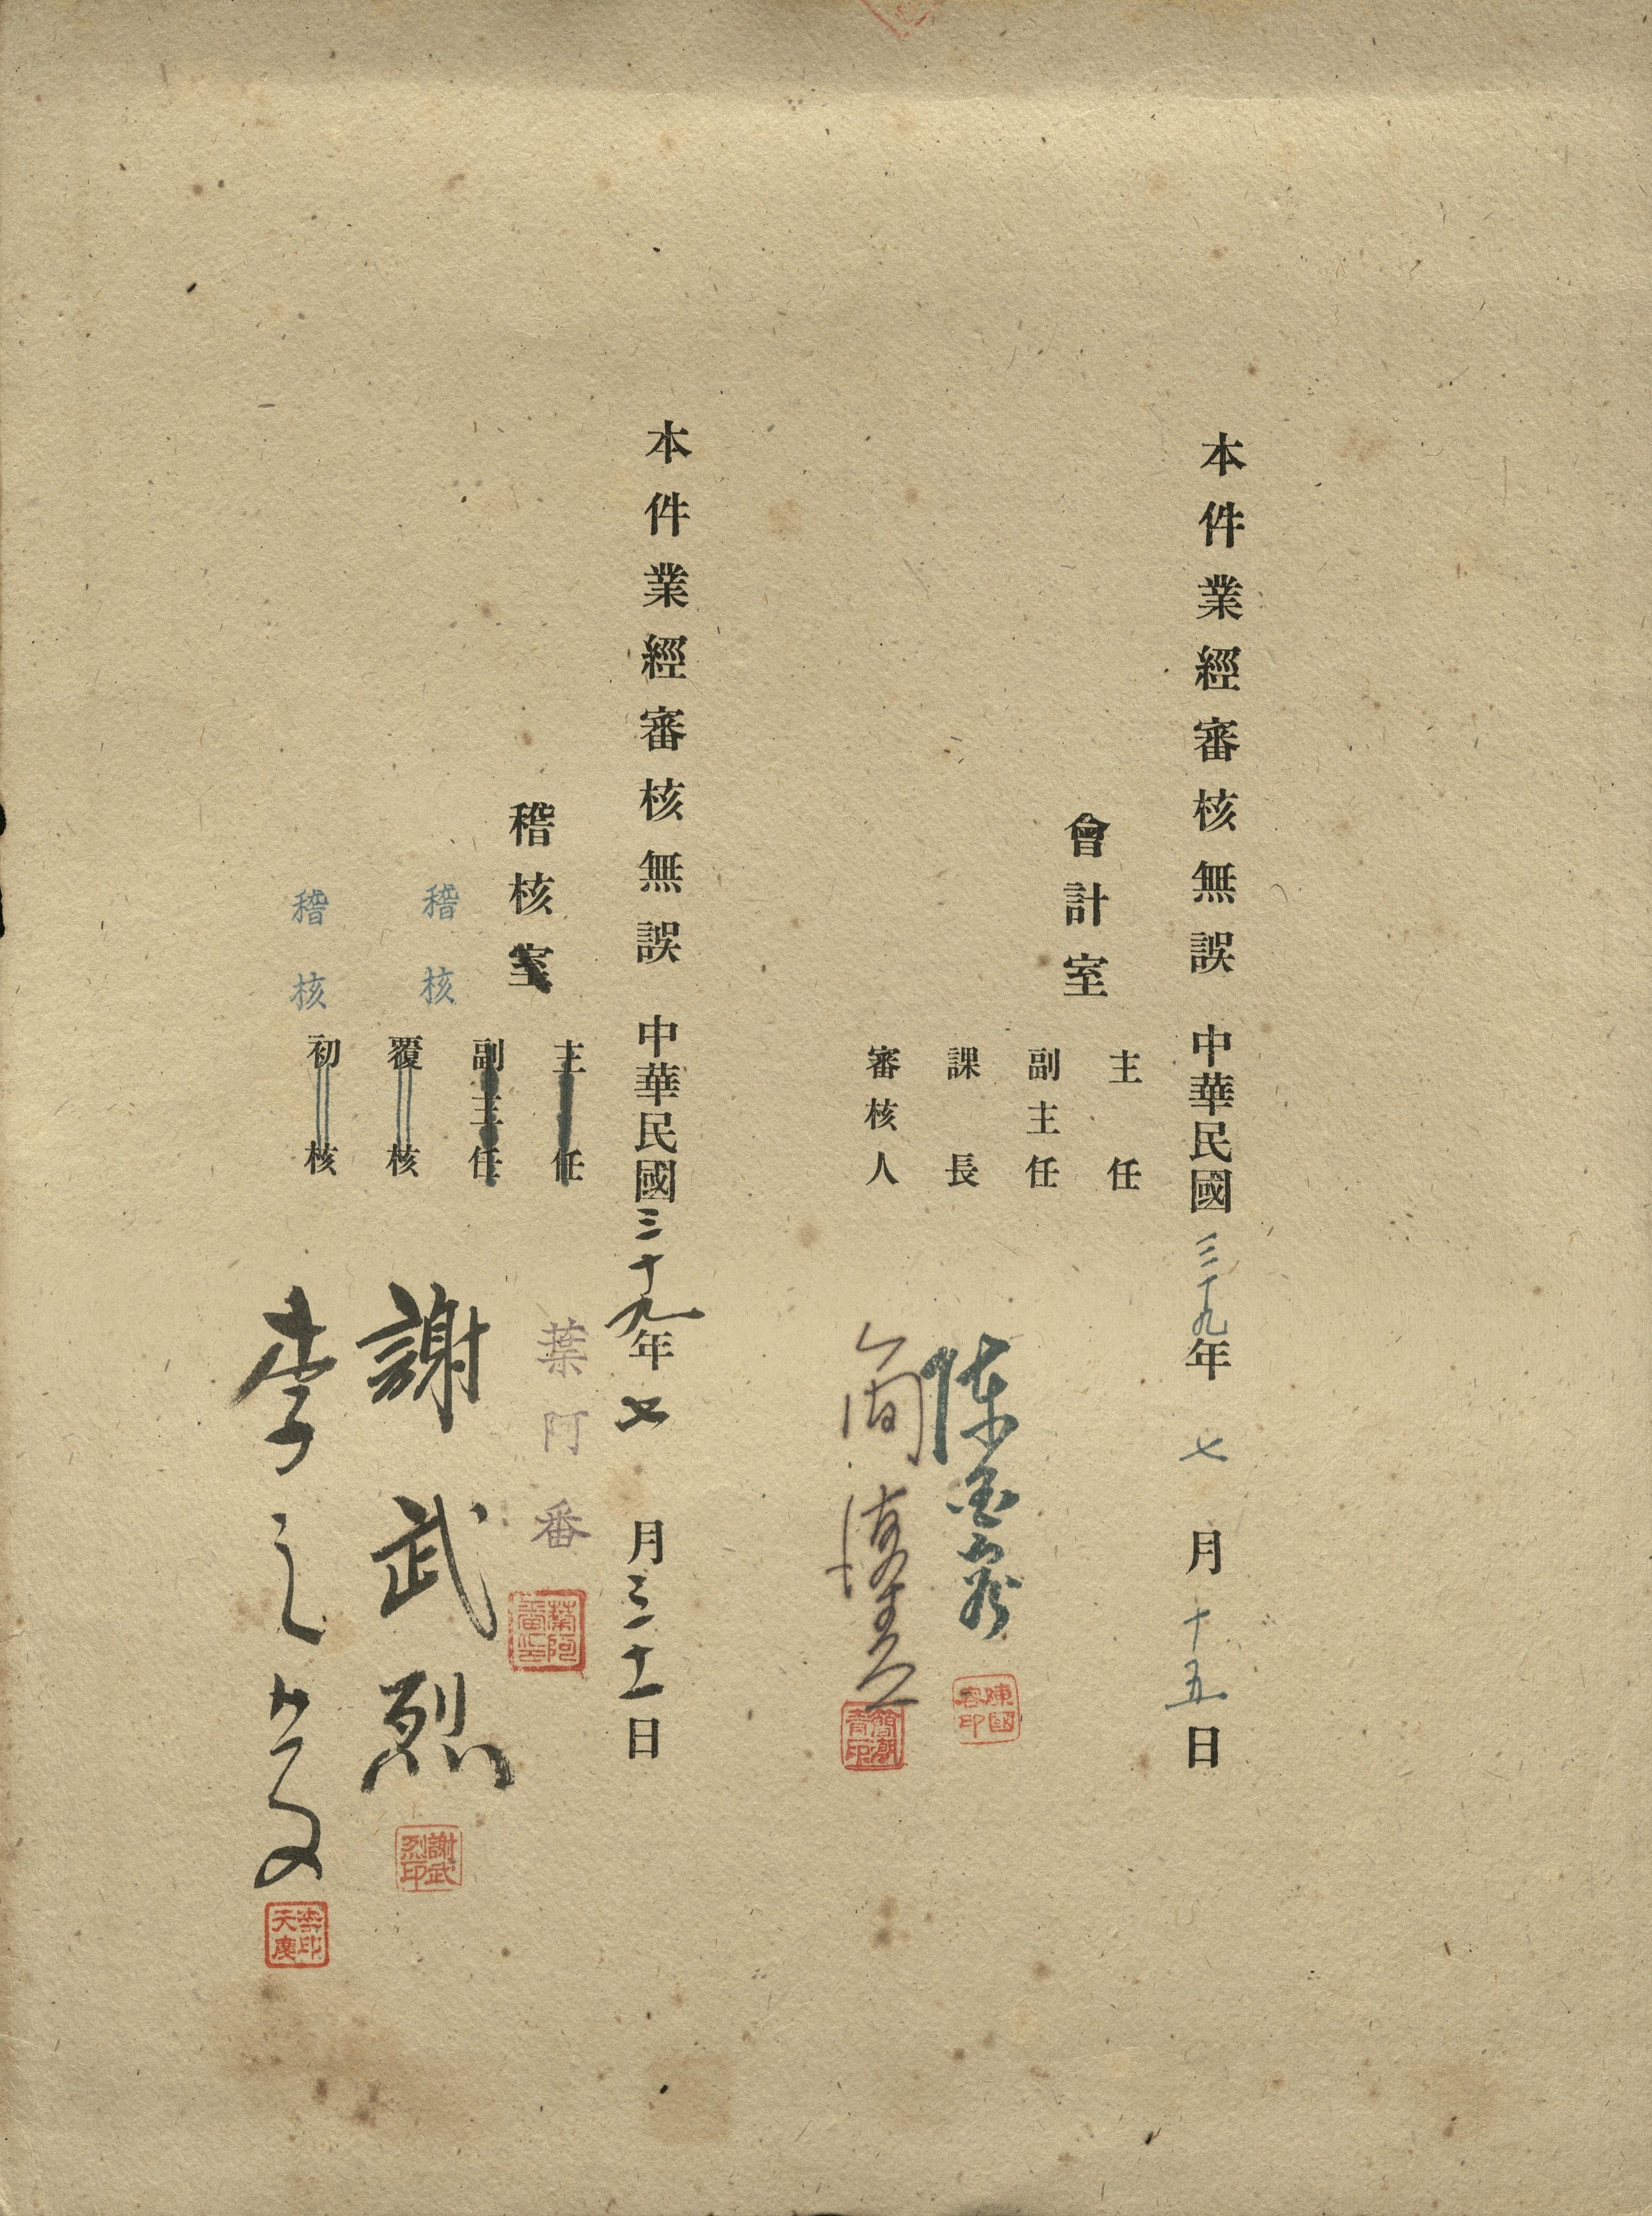 本件業經審核無誤 中華民國三十九年七月十五日
會計室
主任
副主任
課長 陳
審核人 簡
陳國容印
簡潮青印
本件業經審核無誤 中華民國三十九年七月三十一日
稽核室
主任
副主任
葉阿番
葉阿番印
稽核
覆核 謝武烈
謝武烈印
稽核
初核 李天慶
李印天慶